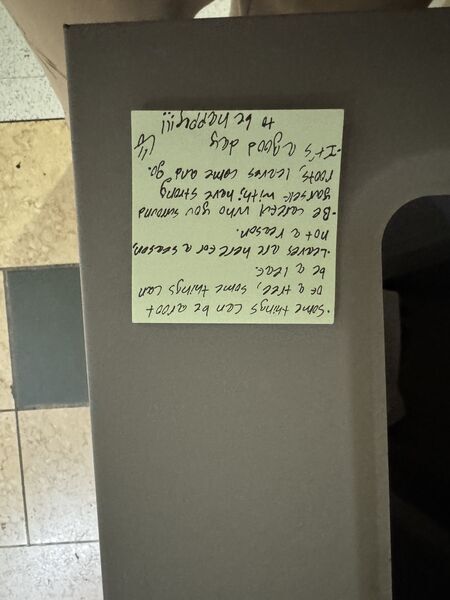 · Some things can be a root
of a tree, some things can
be a leaf.
- Leaves are here for a season,
not a reason.
- Be careful who you surround
yourself with; have strong
roots, leaves come and go.
- It's a good day
to be happy!!!